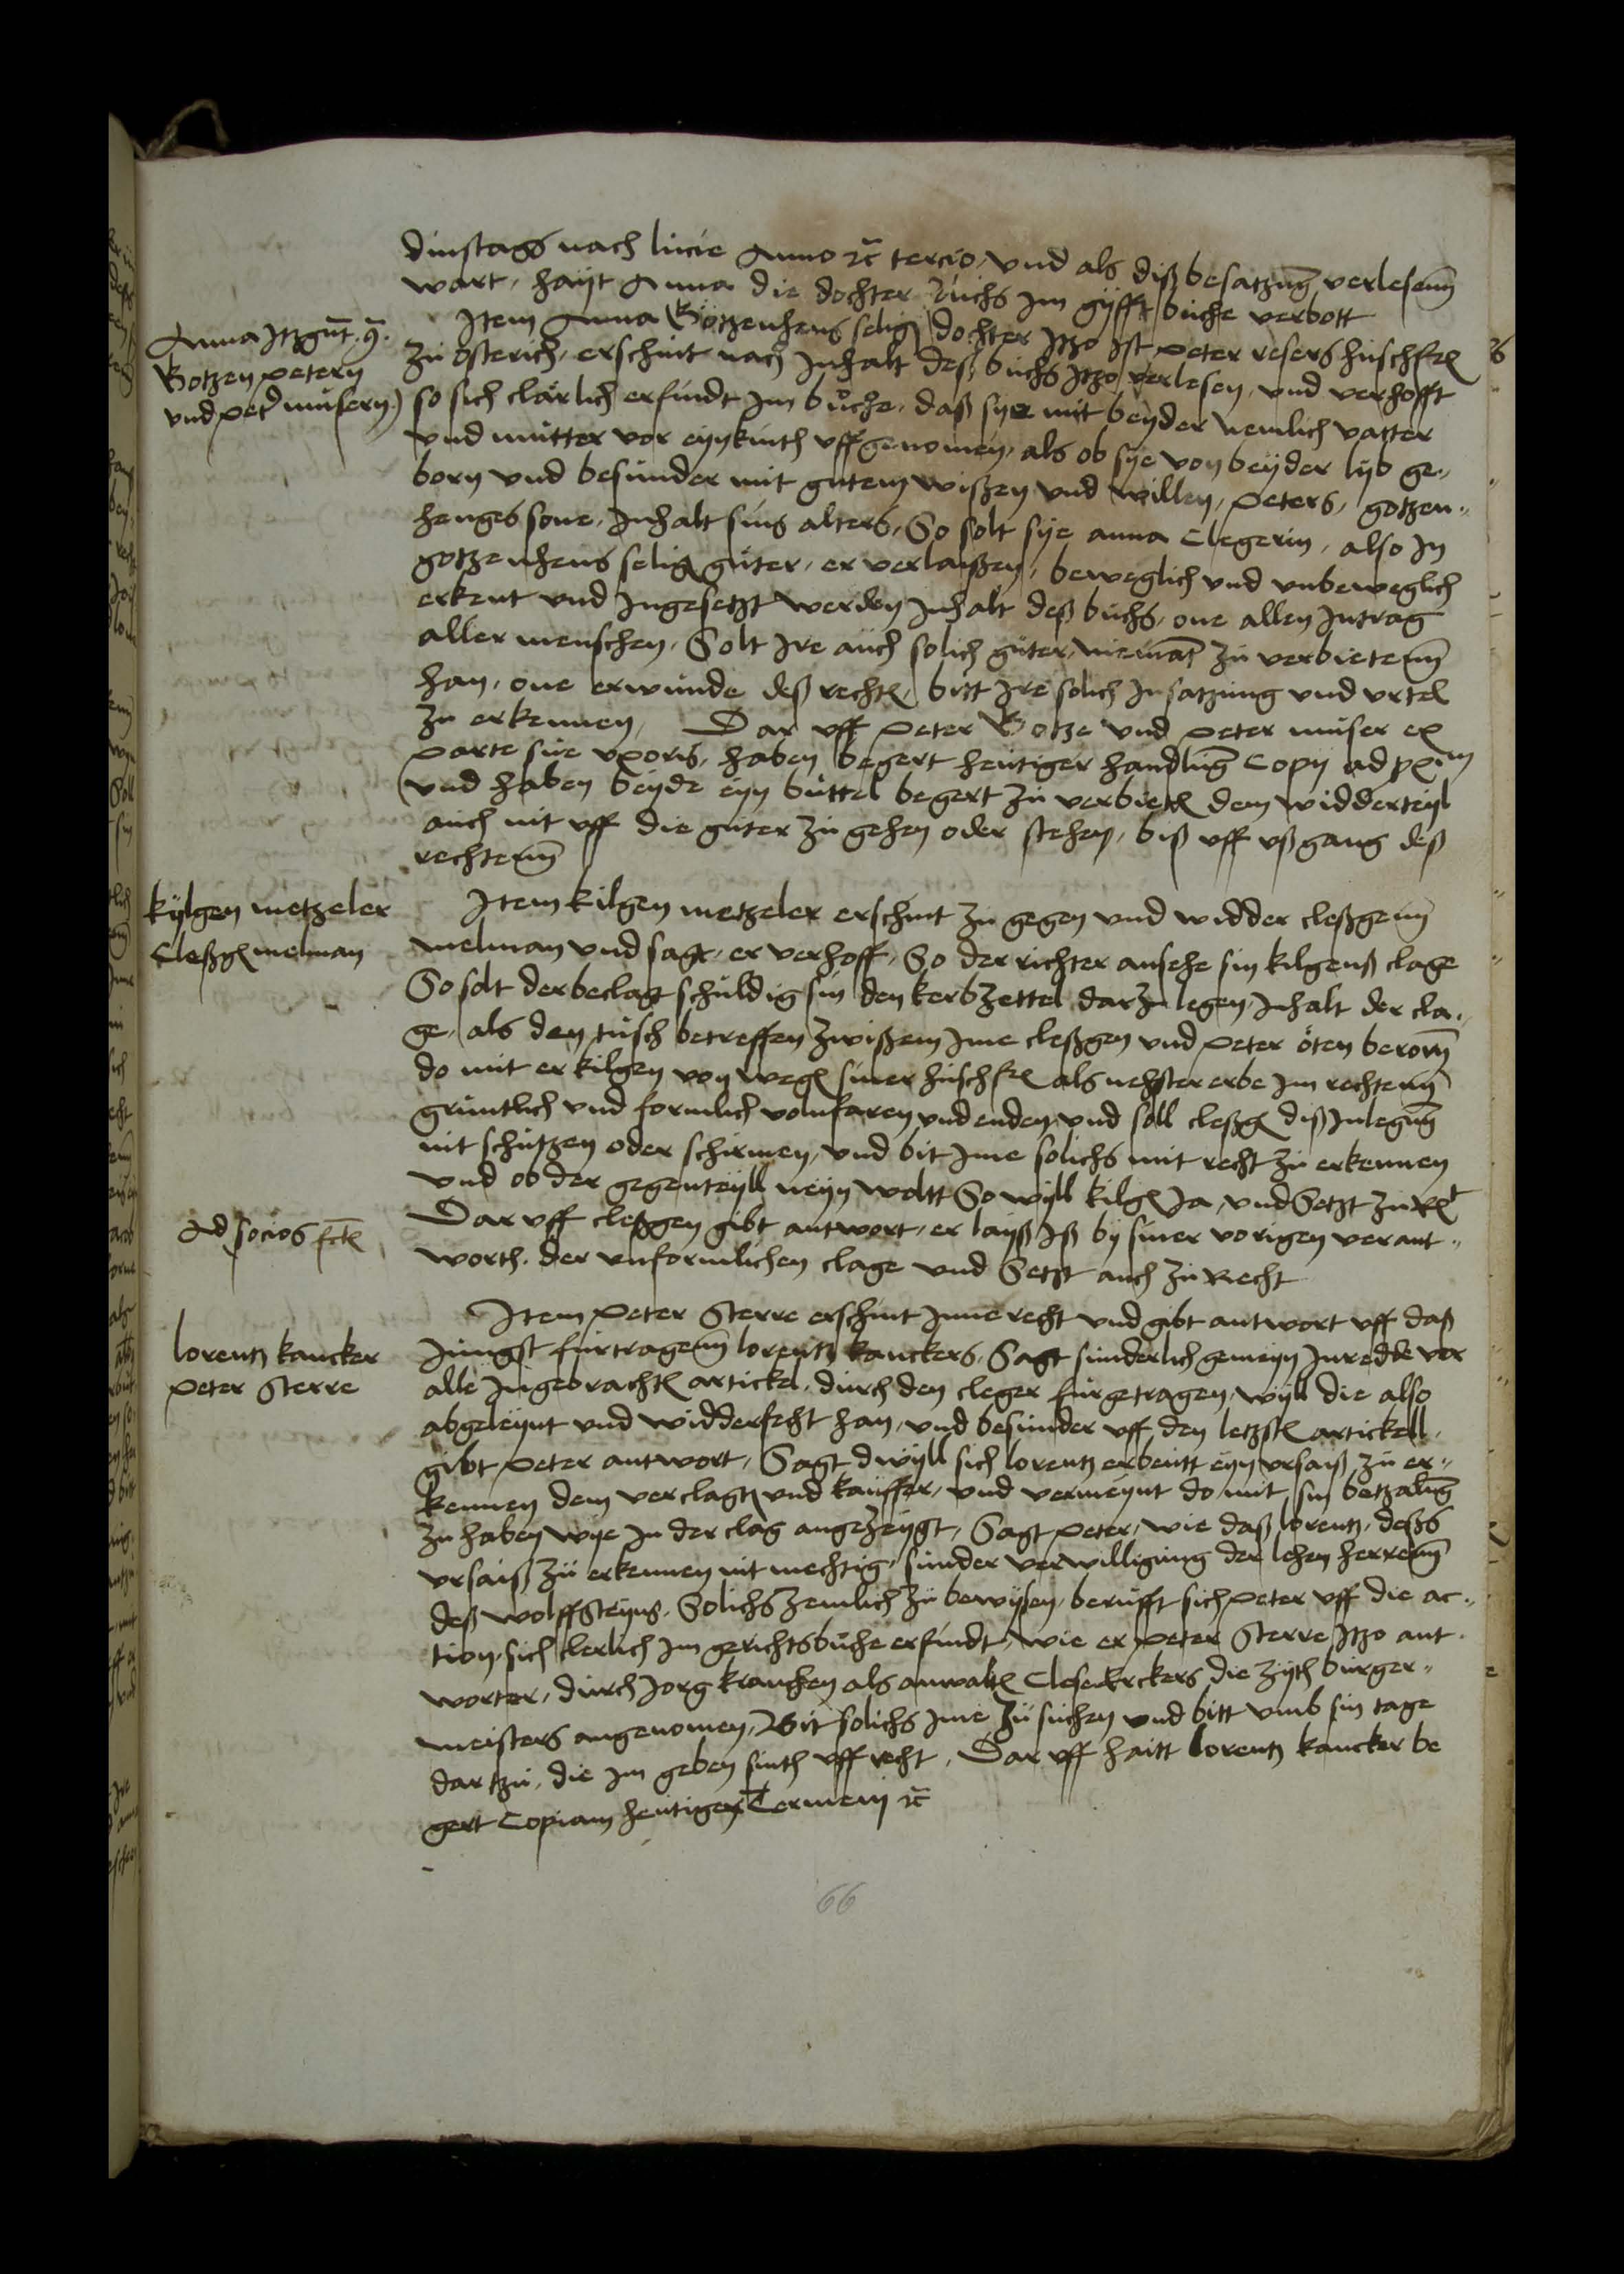 dinstags nach lucie Anno ꝛc̄ tercio, und als diß besatzung verlesenn
wart, hayt Anna die dochter buchs im gyfft buche verbott
Anna Itzgut. 
Gotzen petern
und pet' musern)
Item Anna Gotzenhens selig dochter Itzo ist peter resers huschfr
zu osterich, erschint nach Inhalt deß buchs Itzo verlesen, und verhofft
so sich clärlich erfindt im bůche, daß sye mit beyder nemlich vatter
und mutter vor eyn kinth uffgenomen, als ob sye von beyder lyb ge„
born und besunder mit gutem wißen und willen, peters, gotzen„
henges sone, Inhalt sins alters, So solt sye anna Clegerin, also In
gotzenhens selig guter, er verlaißen, beweglich und unbeweglich
erkent und Ingesetzt werden Inhalt deß buchs, one allen Intrag
aller menschen, Solt Ire auch solich guter, niemāt zu verbietenn
han, one erwunde deß rechts, bitt Ire solich Insatzung und urtel
zu erkennen, Dar uff peter Gotze und peter muser ex
parte sue uxoris, haben begert heutiger handlūg Copy ad px
und haben beyde eyn buttel begert zu verbiet dem widderteyl
auch nit uff die guter zu gehen oder stehen, biß uff ußgang deß
rechtenn
kylgen metzeler
Cleßg melman
Item kilgen metzeler erschint zu gegen und widder cleßgenn
melman und sagt, er verhoff, So der richter ansehe sin kilgenß clage
So solt der beclagt schuldig sin den kerbzettel dar zu legen, Inhalt der cla„
ge, als den tusch betreffen zwißem Ime cleßgen und peter öten berorn
do mit er kilgen von wegen siner huschfr als nehster erbe im rechtenn
gruntlich und formlich volnfaren und enden, und soll cleßg diß Inlegūg
nit schutzen oder schirmen, und bit Ime solichs mit recht zu erkennen
und ob der gegenteyll neyn woltt So wyll kilg Ja, und Setzt zu R
Ad socios
Dar uff cleßgen gibt antwort, er laiß Iß by siner vorigen verant„
worth. der unformlichen clage und Setzt auch zu Recht
lorentz kancker
peter Sterre
Item peter Sterre erschint Inne recht und gibt antwort uff daß
Jungst furtragenn lorentz kanckers, Sagt sunderlich gemeyn Inredde vor
alle Ingebracht artickel, durch den cleger furgetragen, wyll die also
abgeleynt und widderfecht han, und besunder uff den letzst artickell,
gibt peter antwort, Sagt dwyll sich lorentz erbeutt eyn ursaiß zu er„
kennen dem verclagt und kauffer, und vermeynt do mit sin betzalūg
zu haben wye In der clag angezeygt, Sagt peter, wie daß lorentz, deßs
ursaiß zu erkennen nit mechtig, sunder verwilligung der lehen herrenn
deß wolffsteyns. Solichs zemlich zu bewysen, berufft sich peter uff die ac„
tion, sich clerlich im gerichtsbuche erfindt, wie er peter Sterre Itzo ant„
worter, durch Jorg kranchen als anwalt Clese Erckers die zyth burger„
meisters angenomen, Bit solichs Ime zu suchen und bitt umb sin tage
dar tzu, die Im geben sinth uff recht. Dar uff haitt lorentz kancker be
gert Copiam heutiger Termeni ꝛc̄
66